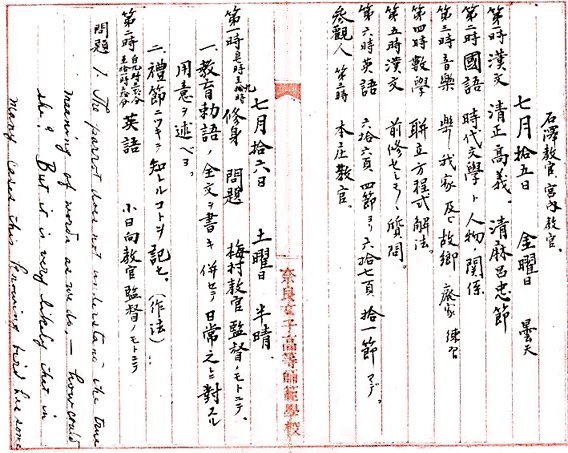 石澤教官、宮内教官。
七月拾五日 金曜日 曇天
第一時 漢文 清正高義、清麻呂忠節
第二時 國語 時代文學ト人物ノ関係
第三時 音樂 樂シ我家及ビ故郷ノ廢家 練習
第四時 數學 聯立方程式解法。
第五時 漢文 前修セシヨリ質問。
第六時 英語 六拾六頁四節ヨリ六拾七頁拾一節マデ。
參觀人 第二時 本庄教官。
奈良女子高等師範學校
七月拾六日 土曜日 半晴
第一時 修身 問題 梅村教官監督ノモトニテ、
一、教育勅語ノ全文ヲ書キ併セテ日常之ニ對スル
用意ヲ述ベヨ。
二、禮節ニツキテ知レルコトヲ記セ。(作法)
第二時 英語 小日向教官監督ノモトニテ
問題 1. The parrot does not understand the true
meaning of words as we do, — how could
she? But it is very likely that in
many cases this knowing bird has some